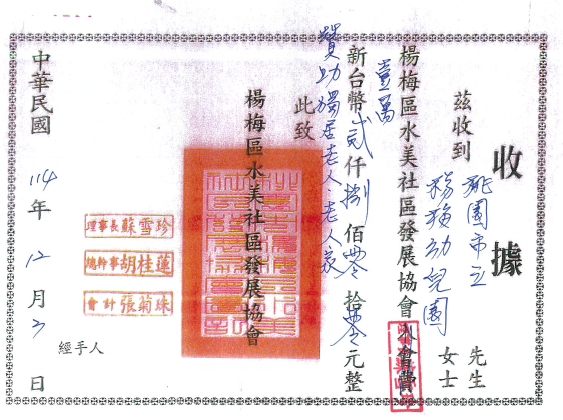 收據
茲收到 桃園市立楊梅幼兒園 先生女士
楊梅區水美社區發展協會入會費
壹萬
新台幣 貳 仟 捌 佰 零 拾 零 元整
贊助獨居老人、老人家
此致
楊梅區水美社區發展協會
理事長 蘇雪珍
總幹事 胡桂蓮
會計 張菊珠
經手人
中華民國 114 年 12 月 3 日